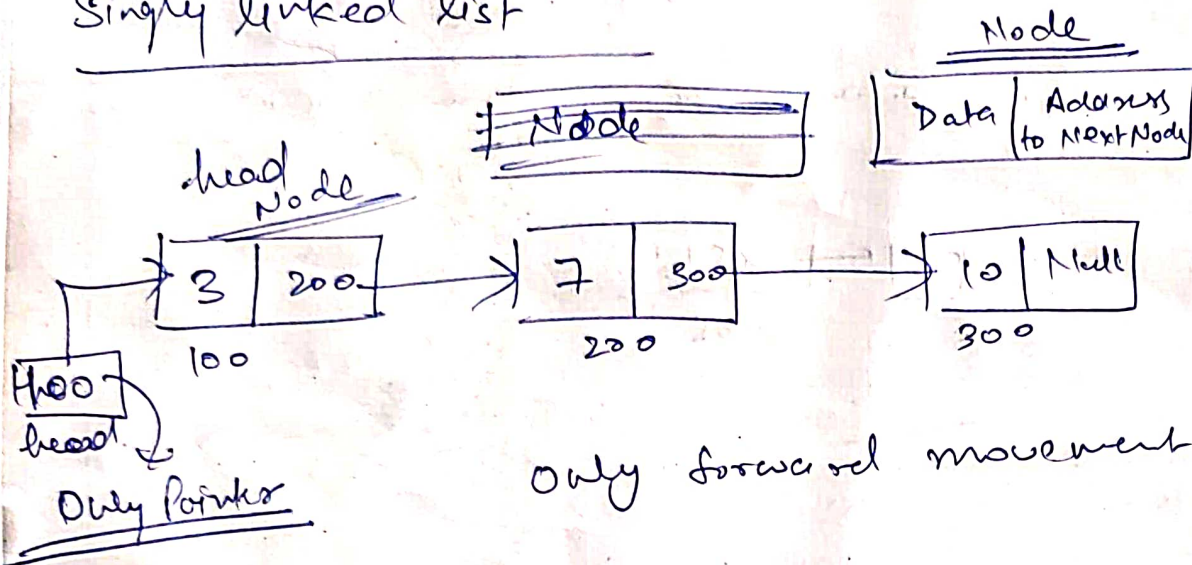 Singly linked list
Node
Node
Data | Address to Next Node
head Node
3 | 200
7 | 300
10 | Null
100
200
300
100
head
Only Pointer
Only forward movement